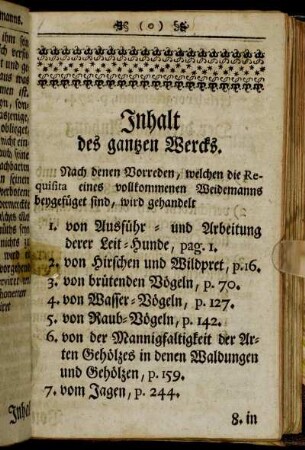 ( o )
Inhalt
des gantzen Wercks.
Nach denen Vorreden, welchen die Re-
quisita eines vollkommenen Weidemanns
beygefüget sind, wird gehandelt
1. von Ausführ- und Arbeitung
derer Leit-Hunde, pag. 1.
2. von Hirschen und Wildpret, p.16.
3. von brütenden Vögeln, p. 70.
4. von Wasser-Vögeln, p. 127.
5. von Raub-Vögeln, p. 142.
6. von der Mannigfaltigkeit der Ar-
ten Gehölzes in denen Waldungen
und Gehölzen, p. 159.
7. vom Jagen, p. 244.
8. in